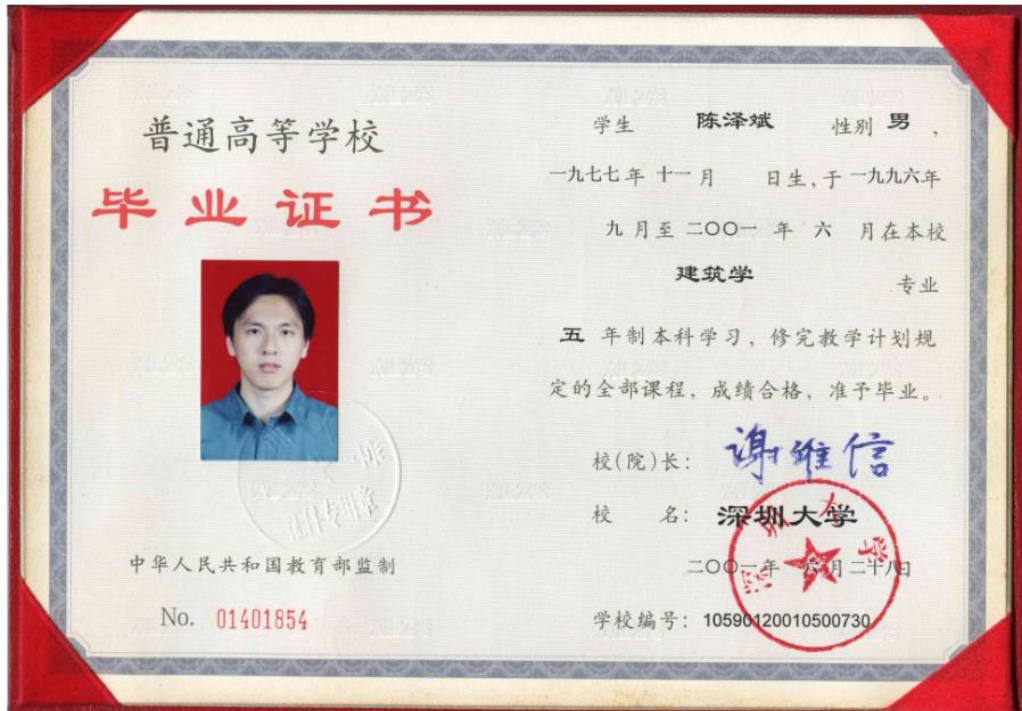 普通高等学校
毕业证书
中华人民共和国教育部监制
No. 01401854
学生 陈泽斌 性别 男,
一九七七年 十一月 日生,于 一九九六年
九月至 二〇〇一 年 六 月在本校
建筑学 专业
五 年制本科学习,修完教学计划规
定的全部课程,成绩合格,准予毕业。
校(院)长: 谢维信
校 名: 深圳大学
二〇〇一年 六月二十八日
学校编号: 10590120010500730
深圳大学